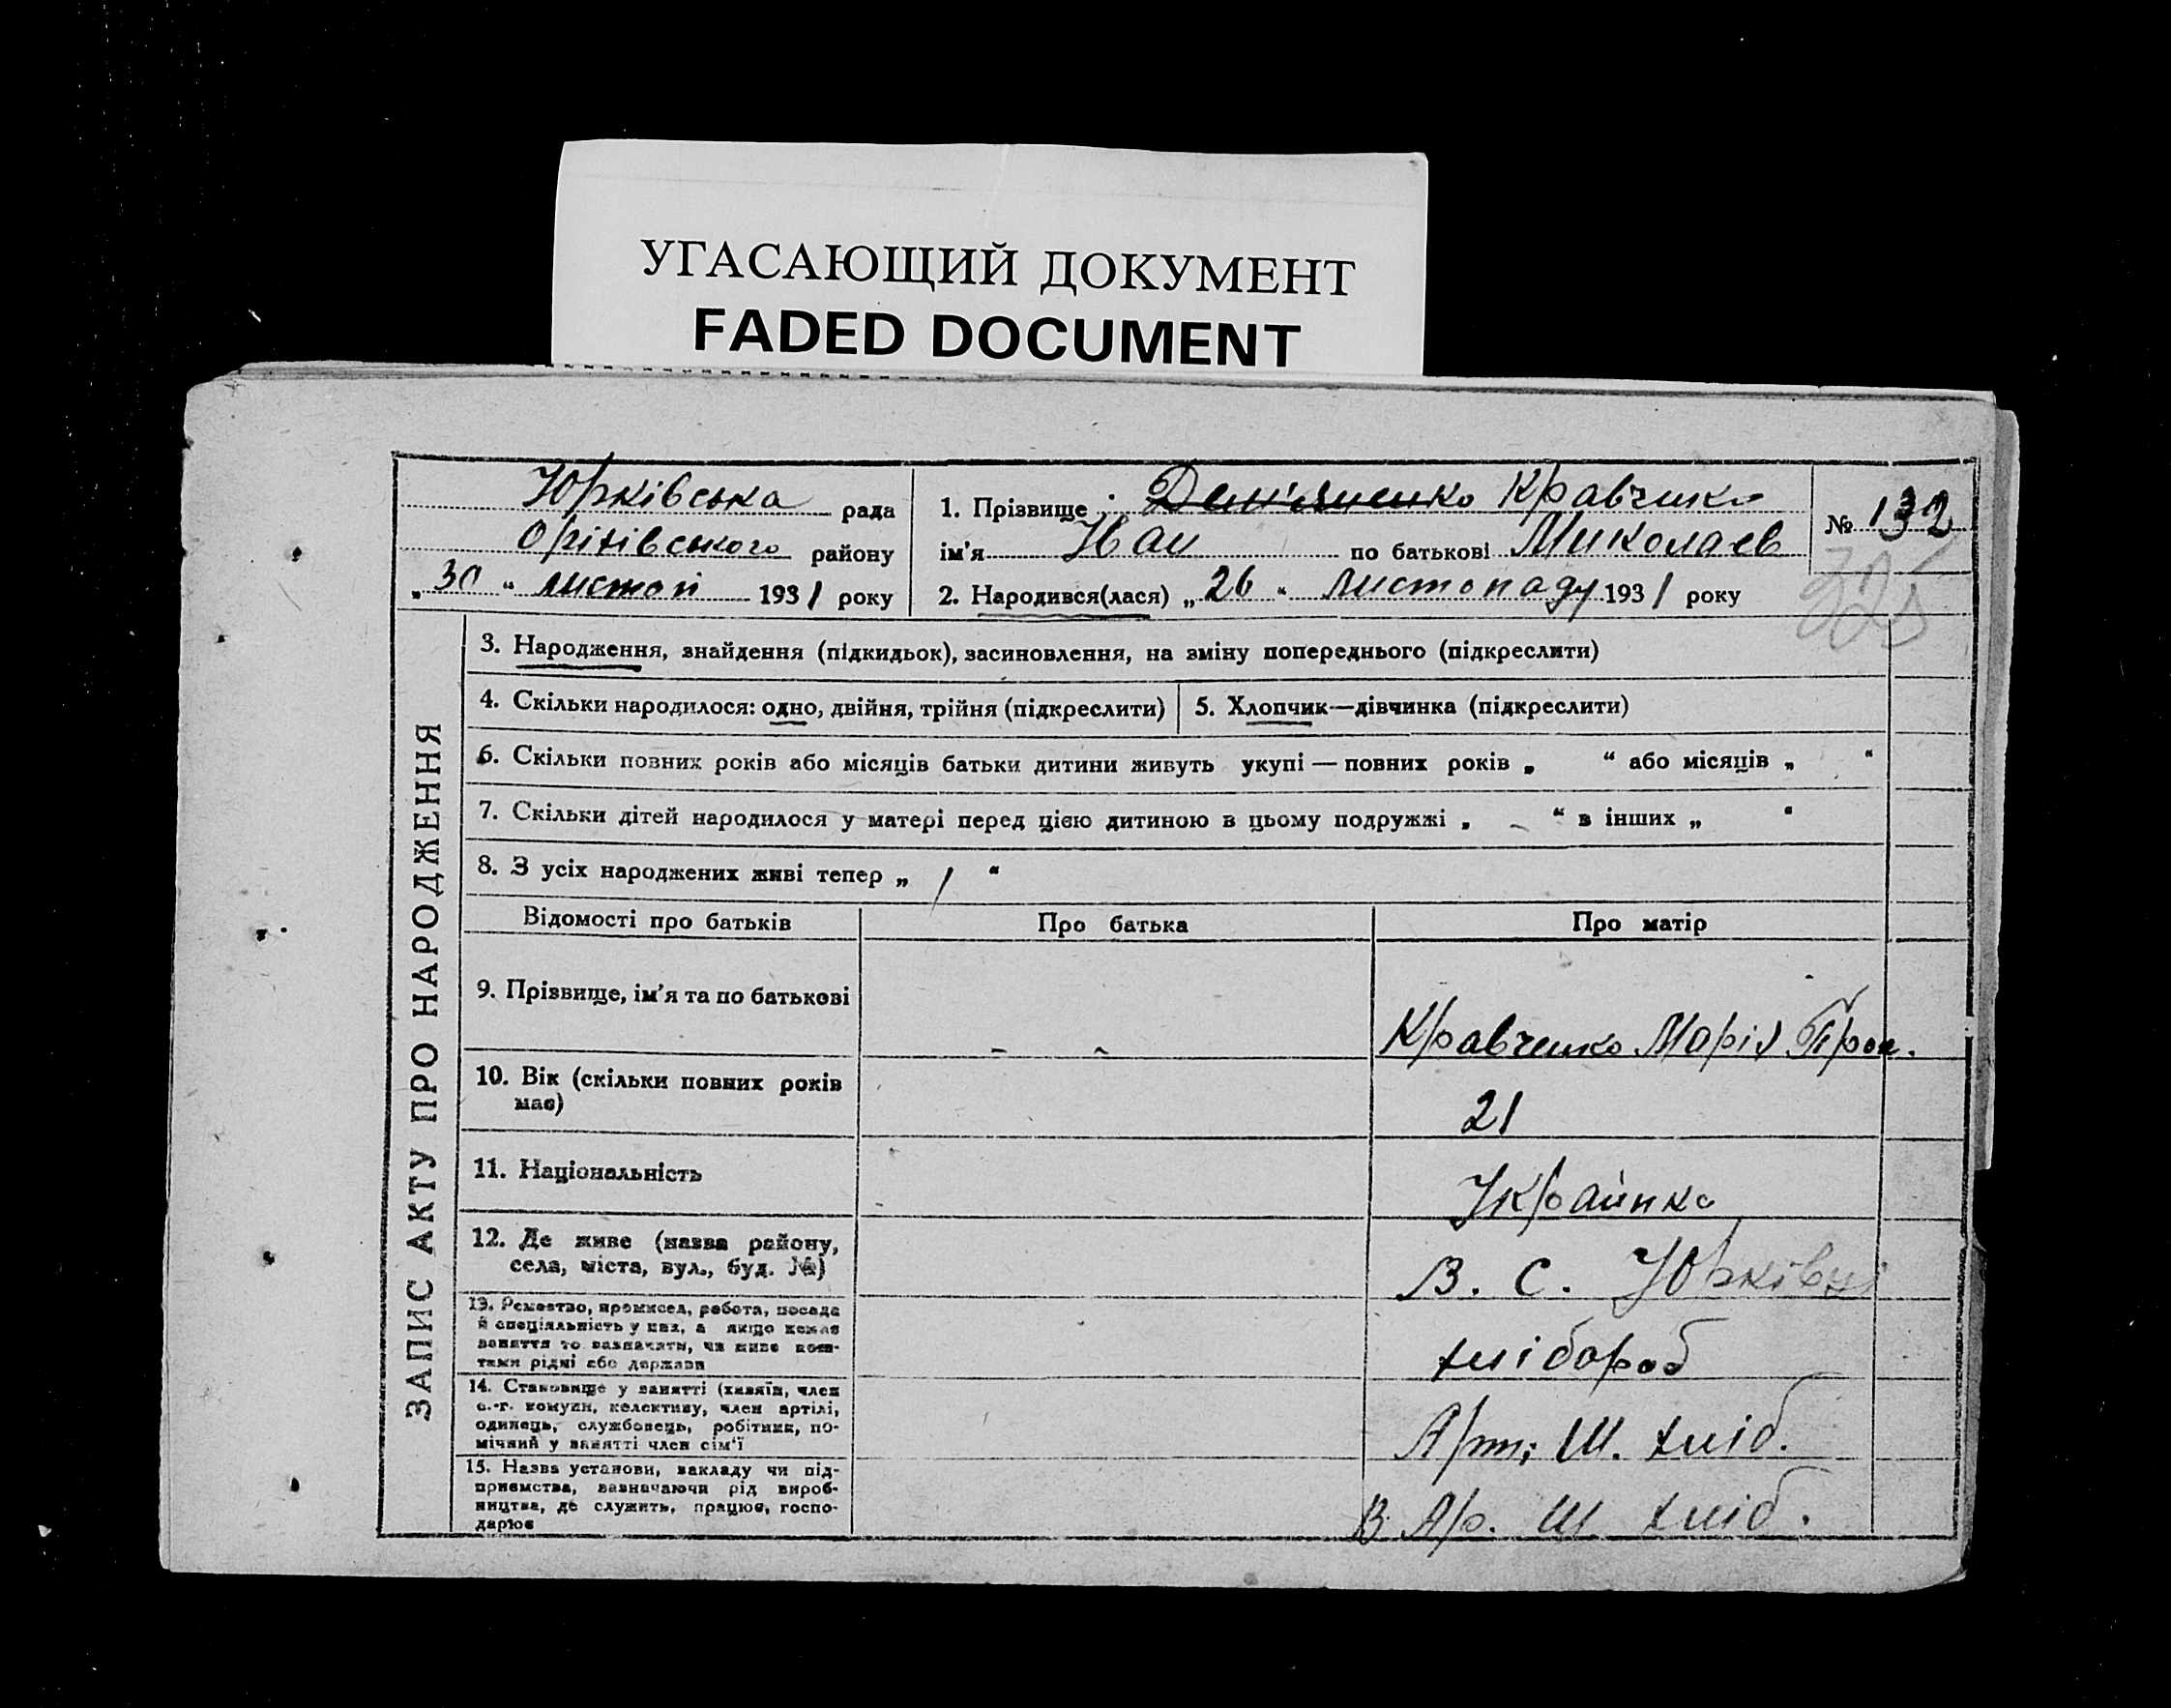 УГАСАЮЩИЙ ДОКУМЕНТ
FADED DOCUMENT
Юрківська рада
Оріхівського району
„30“ листоп 1931 року
1. Прізвище Дем'яненко Кравченко
ім'я Іван по батькові Миколаєв
№ 132
325
2. Народився(лася) „26“ листопаду 1931 року
ЗАПИС АКТУ ПРО НАРОДЖЕННЯ
3. Народження, знайдення (підкидьок), засиновлення, на зміну попереднього (підкреслити)
4. Скільки народилося: одно, двійня, трійня (підкреслити)
5. Хлопчик—дівчинка (підкреслити)
6. Скільки повних років або місяців батьки дитини живуть укупі — повних років „ “ або місяців „ “
7. Скільки дітей народилося у матері перед цією дитиною в цьому подружжі „ - “ в інших „ “
8. З усіх народжених живі тепер „ 1 “
Відомості про батьків
Про батька
Про матір
9. Прізвище, ім'я та по батькові
- -
Кравченко Марія Проп.
10. Вік (скільки повних років
має)
21
11. Національність
Українка
12. Де живе (назва району,
села, міста, вул., буд. №)
В. с. Юрківці
13. Ремество, промисел, робота, посада
й спеціяльність у них, а якщо немає
заняття то зазначити, чи живе кош-
тами рідні або держави
хлібороб
14. Становище у занятті (хазяїн, член
с.-г. комуни, колективу, член артілі,
одинець, службовець, робітник, по-
мічний у занятті член сім'ї
Арт; Ш. хліб.
15. Назва установи, закладу чи під-
приємства, зазначаючи рід вироб-
ництва, де служить, працює, госпо-
дарює
В Ар. Ш. хліб.